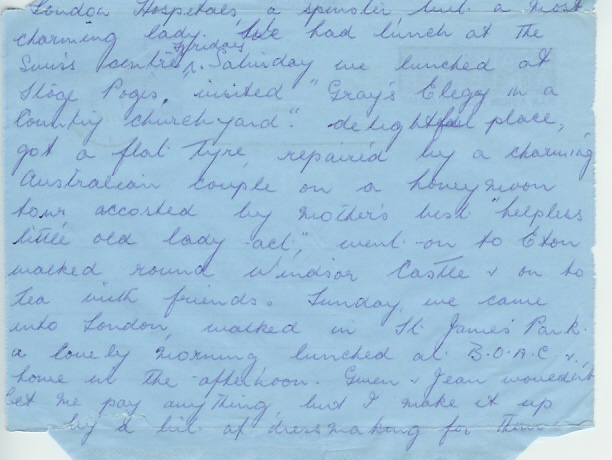 London Hospitals a spinster but a most
charming lady. We had lunch at the
Swiss centre Friday. Saturday we lunched at
Stoge Poges, visited "Gray's Elegy in a
Country churchyard". delightful place,
got a flat tyre, repaired by a charming
Australian couple on a honeymoon
tour accosted by Mother's best "helpless
little old lady act", went on to Eton
walked round Windsor Castle & on to
tea with friends. Sunday we came
into London, walked in St. James Park.
a lovely morning lunched at B.O.A.C &
home in the afternoon. Gwen & Jean wouldn't
let me pay anything, but I make it up
by a bit of dressmaking for them